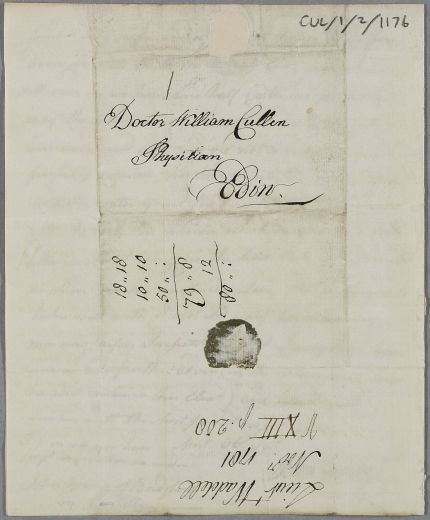 CUL/1/2/1176
Doctor William Cullen
Physitian
Edinr.
18 " 18
10 " 10
50 " :
79 " 8
12
80 " :
Lieut Waddell
Novr. 1781
V XIII p.